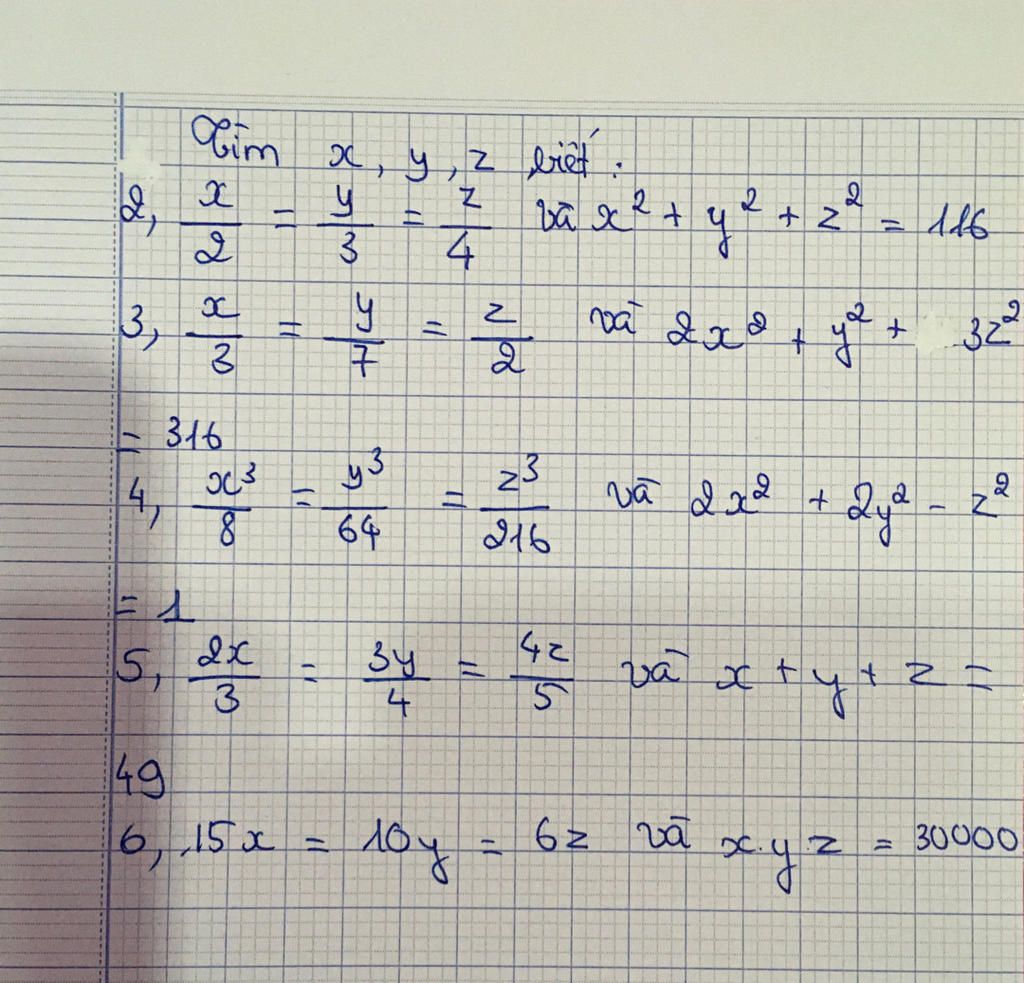 Tìm x, y, z biết :
2, x/2 = y/3 = z/4 và x² + y² + z² = 116
3, x/3 = y/7 = z/2 và 2x² + y² + 3z²
= 316
4, x³/8 = y³/64 = z³/216 và 2x² + 2y² - z²
= 1
5, 2x/3 = 3y/4 = 4z/5 và x + y + z =
49
6, 15x = 10y = 6z và x.y z = 30000